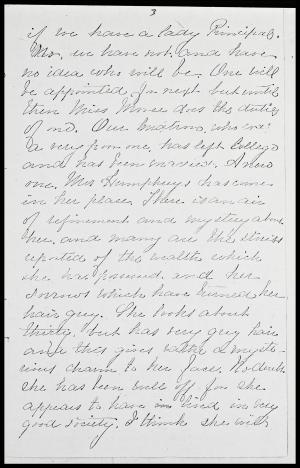 3
if we have a lady Principal.
No, we have not, and have
no idea who will be. One will
be appointed for next but until
then Miss Morse does the duties
of one. Our matron, who was
a very poor one, has left College
and has been married. A new
one, Mrs Humphreys has come
in her place. There is an air
of refinement and mystery about
her, and many are the stories
reported of the wealth which
she has possessed and her
sorrows which have turned her
hair grey. She looks about
thirty, but has very grey hair
and this gives rather a myste-
rious charm to her face. No doubt
she has been well off for she
appears to have lived in very
good society. I think she will